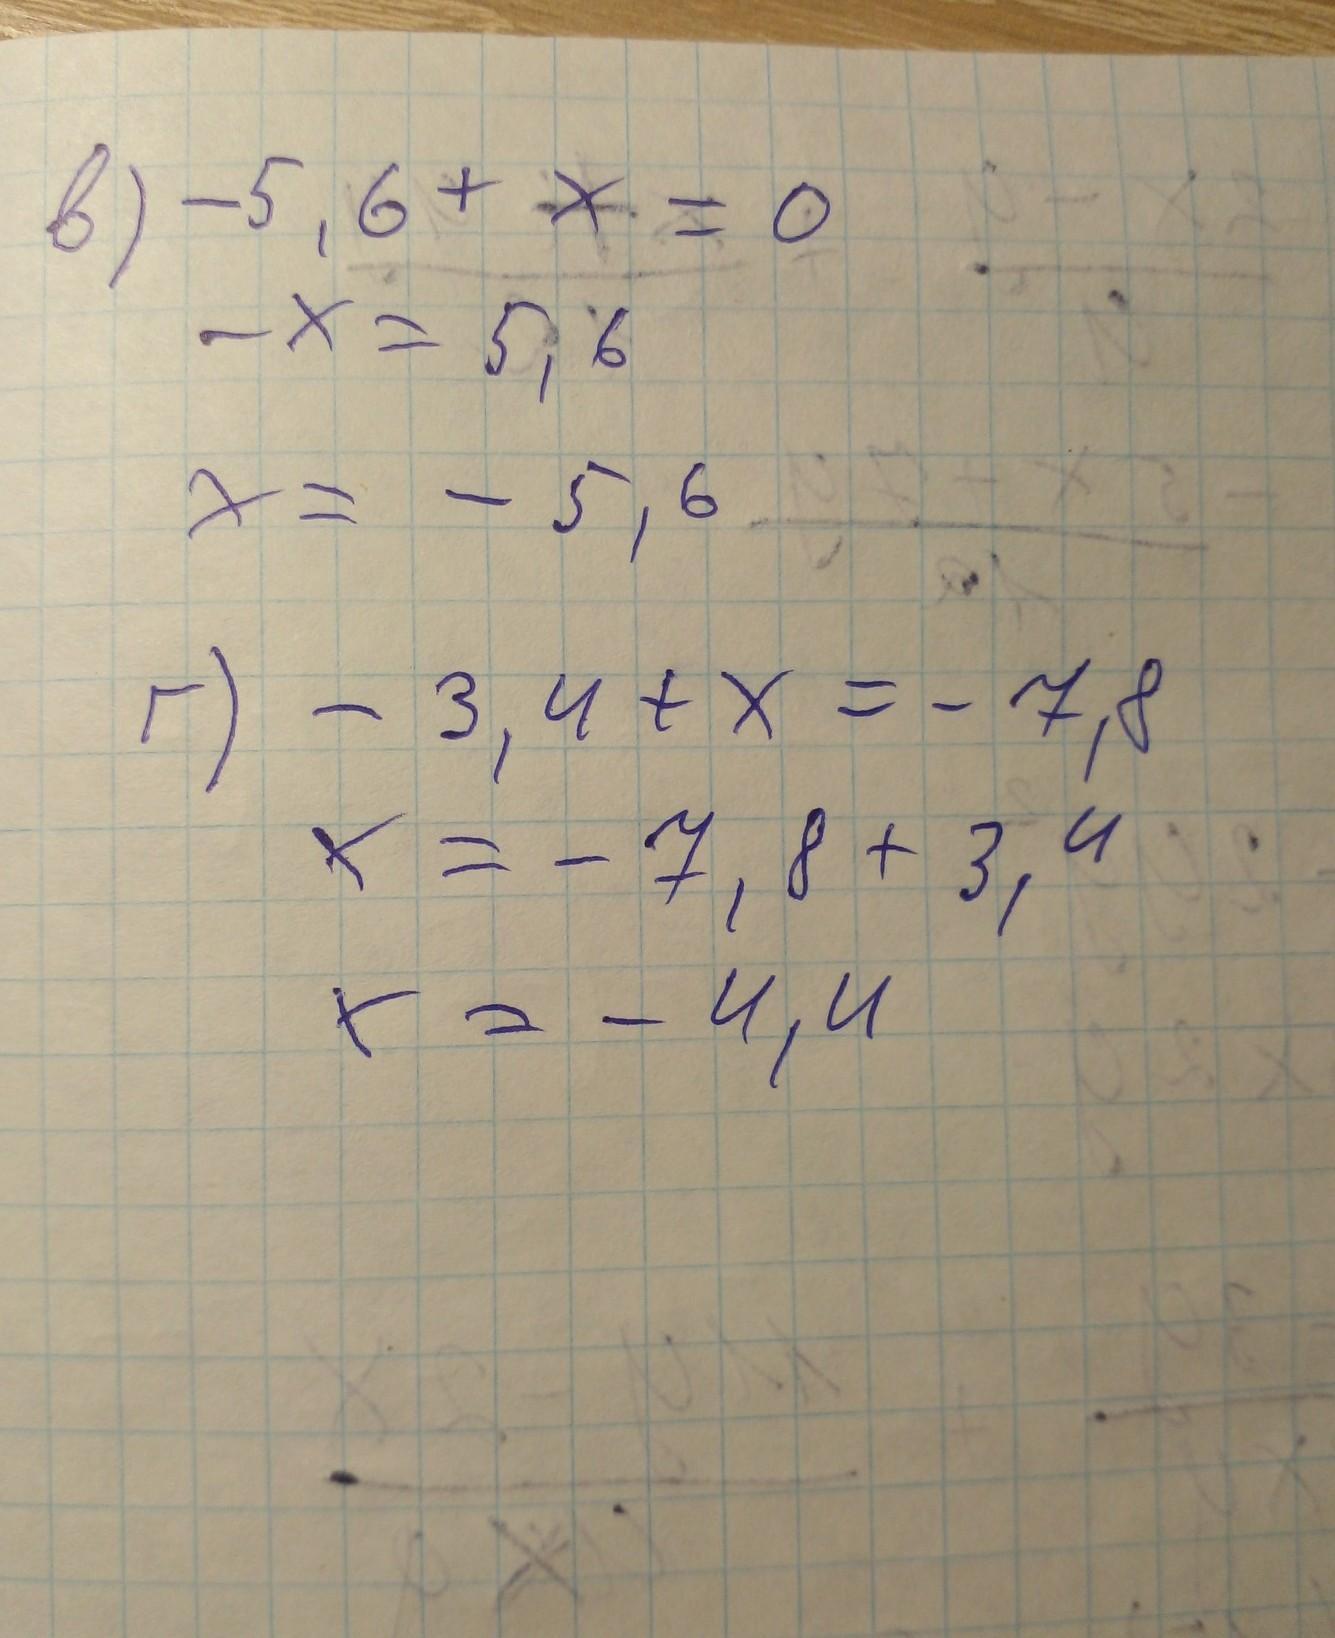 в) -5,6 + x = 0
-x = 5,6
x = - 5,6
г) - 3,4 + x = - 7,8
x = - 7,8 + 3,4
x = - 4,4